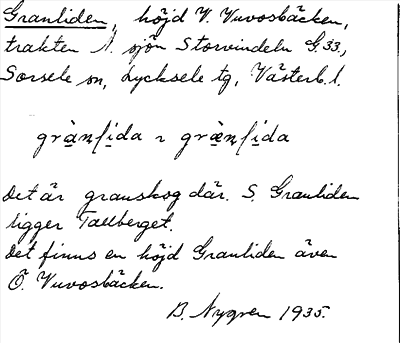 Granliden, höjd V. Vuvosbäcken,
trakten N. sjön Storvindeln G.33.,
Sorsele sn, Lycksele tg, Västerb. l.
gràn/ida ~ græ̀n/ida
Det är granskog där. S. Granliden
ligger Tallberget.
Det finns en höjd Granliden även
Ö. Vuvosbäcken.
B. Nygren 1935.